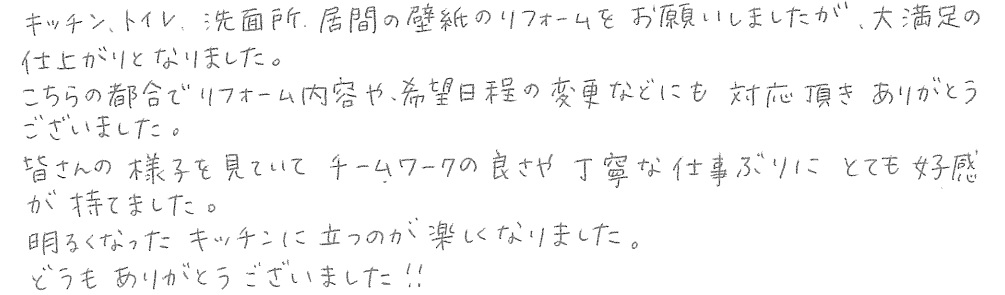 キッチン、トイレ、洗面所、居間の壁紙のリフォームをお願いしましたが、大満足の
仕上がりとなりました。
こちらの都合でリフォーム内容や、希望日程の変更などにも対応頂きありがとう
ございました。
皆さんの様子を見ていてチームワークの良さや丁寧な仕事ぶりにとても好感
が持てました。
明るくなったキッチンに立つのが楽しくなりました。
どうもありがとうございました!!